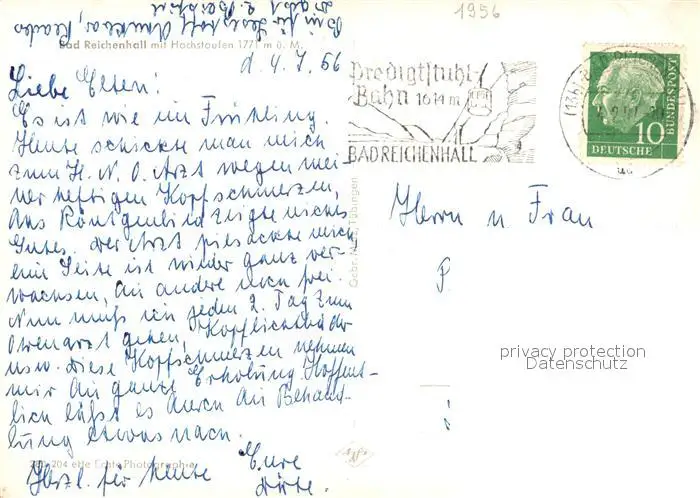 1956
Bin für
Bad Reichenhall mit Hochstaufen 1771 m ü. M.
d. 4. 7. 56
Liebe Eltern!
Es ist wie im Frühling.
Heute schickte man mich
zum H. N. O. Arzt wegen mei-
ner heftigen Kopfschmerzen,
das Röntgenbild zeigte nichts
Gutes. Der Arzt piesackte mich
eine Seite ist wieder ganz ver-
wachsen, die andere noch frei.
Nun muß ich jeden 2. Tag zum
Ohrenarzt gehen, Kopflichtbäder
usw. Diese Kopfschmerzen nehmen
mir die ganze Erholung. Hoffent-
lich läßt es durch die Behand-
lung etwas nach.
Herzl. für heute Eure
204 Echte Photographie
Predigtstuhl-
Bahn 1614 m
BAD REICHENHALL
DEUTSCHE
BUNDESPOST
10
Herrn u Frau
P.
privacy protection
Datenschutz